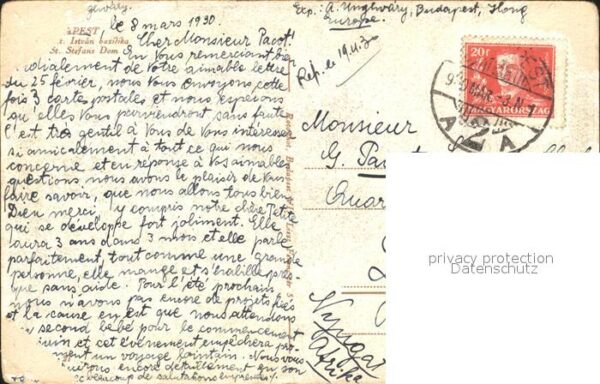 le 8 mars 1930.
Exp.: A. Ungtváry, Budapest, Hong
Europe.
APEST
t. István bazilika
St. Stefans Dom
Cher Monsieur Pacot!
En vous remerciant bien
cordialement de votre aimable lettre
du 25 février, nous vous envoyons cette
fois 3 cartes postales et nous espérons
qu'elles vous parviendront sans faute.
C'est très gentil à vous de vous intéresser
si amicalement à tout ce qui nous
concerne et en réponse à vos aimables
questions, nous avons le plaisir de vous
faire savoir, que nous allons tous bien
Dieu merci, y compris notre chère Petite
qui se développe fort joliment. Elle
aura 3 ans dans 3 mois et elle parle
parfaitement, tout comme une grande
personne, elle mange et s'habille pres-
que sans aide. Pour l'été prochain
nous n'avons pas encore de projets fixés
et la cause en est que nous attendons
second bébé pour le commencement
juin et cet événement empêchera pro
ment un voyage lointain. Nous vous
encore détaillement en son
beaucoup de salutations empressées
Rép. le 19.4.30
20f
MAGYARORSZÁG
Monsieur
G. Pa
Quar
Nyugat
Afrika
privacy protection
Datenschutz